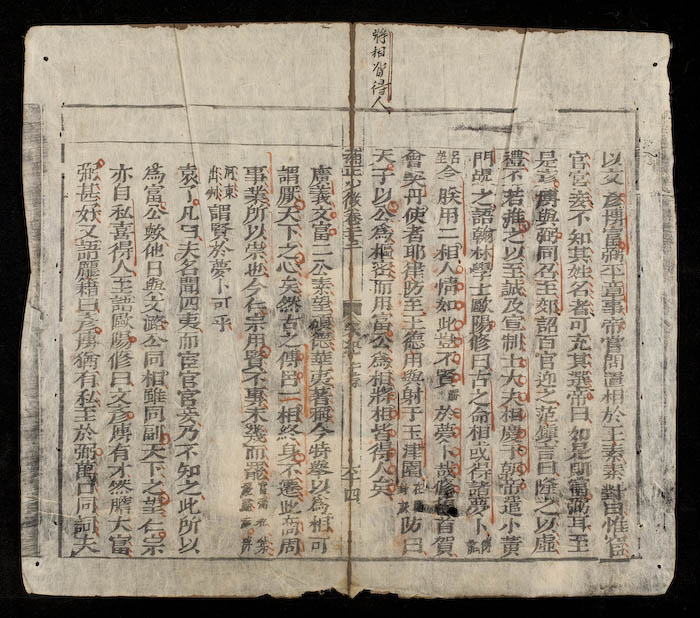 將相皆得人
以文彥博富弼平章事帝嘗問置相於王素素對曰惟宦
官宮妾不知其姓名者可充其選帝曰如是則富弼耳至
是彥博與弼同召至郊詔百官迎之范鎮言曰隆之以虛
禮不若推之以至誠及宣制士大夫相慶于朝帝遣小黃
門覘之語翰林學士歐陽修曰古之命相或得諸夢卜
今朕用二相人情如此豈不賢於夢卜哉修頓首賀
會契丹使者耶律防至王德用與射于玉津園防曰
天子以公為樞密而用富公為相將相皆得人矣
六十四
廣義文富二公素望碩德華夷著稱今特舉以為相可
謂厭天下之心矣然古之傅呂一相終身不遷此商周
事業所以崇也今仁宗用賢不專未幾而罷
河東
謂賢於夢卜可乎
袁了凡曰夫名聞四夷而宦官宮妾乃不知之此所以
為富公歟他日與文潞公同相雖同副天下之望仁宗
亦自私喜得人至語歐陽修曰文彥博有才然膽大富
弼甚好又語龐籍曰彥博猶有私至於弼萬口同詞夫